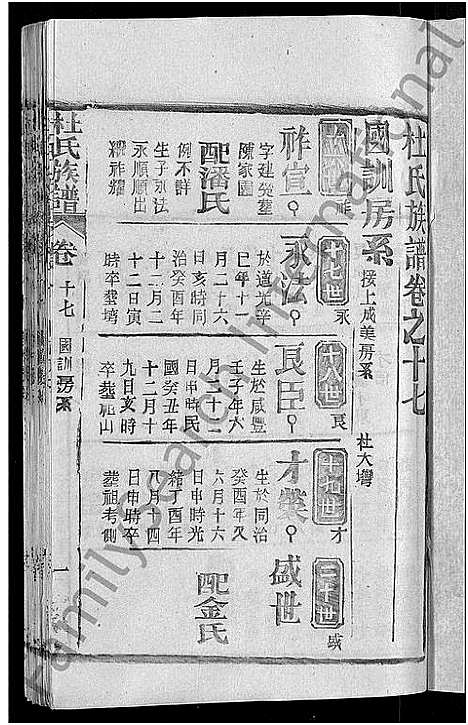 杜氏族譜卷之十七
國訓房系 接上成美房系 杜大塆
祚
祚宣
字建
陳家園
配潘氏
例不詳
生子永法
永順順出
繼祚耀
十七世 永
永法
於道光辛
巳年十一
月二十六
日亥時同
治癸酉年
十二月二
十二日寅
時卒葬墳
十八世 良
良臣
生於咸豐
壬子年六
月二十二
日申時民
國癸丑年
十二月十
九日亥時
卒葬祖山
十九世 才
才
生於同治
癸酉年又
六月十六
日申時光
緒丁酉年
八月十四
日申時卒
葬祖考側
二十世 盛
盛世
配金氏
杜氏族譜
卷
十七
國訓房系
一
FamilySearch International